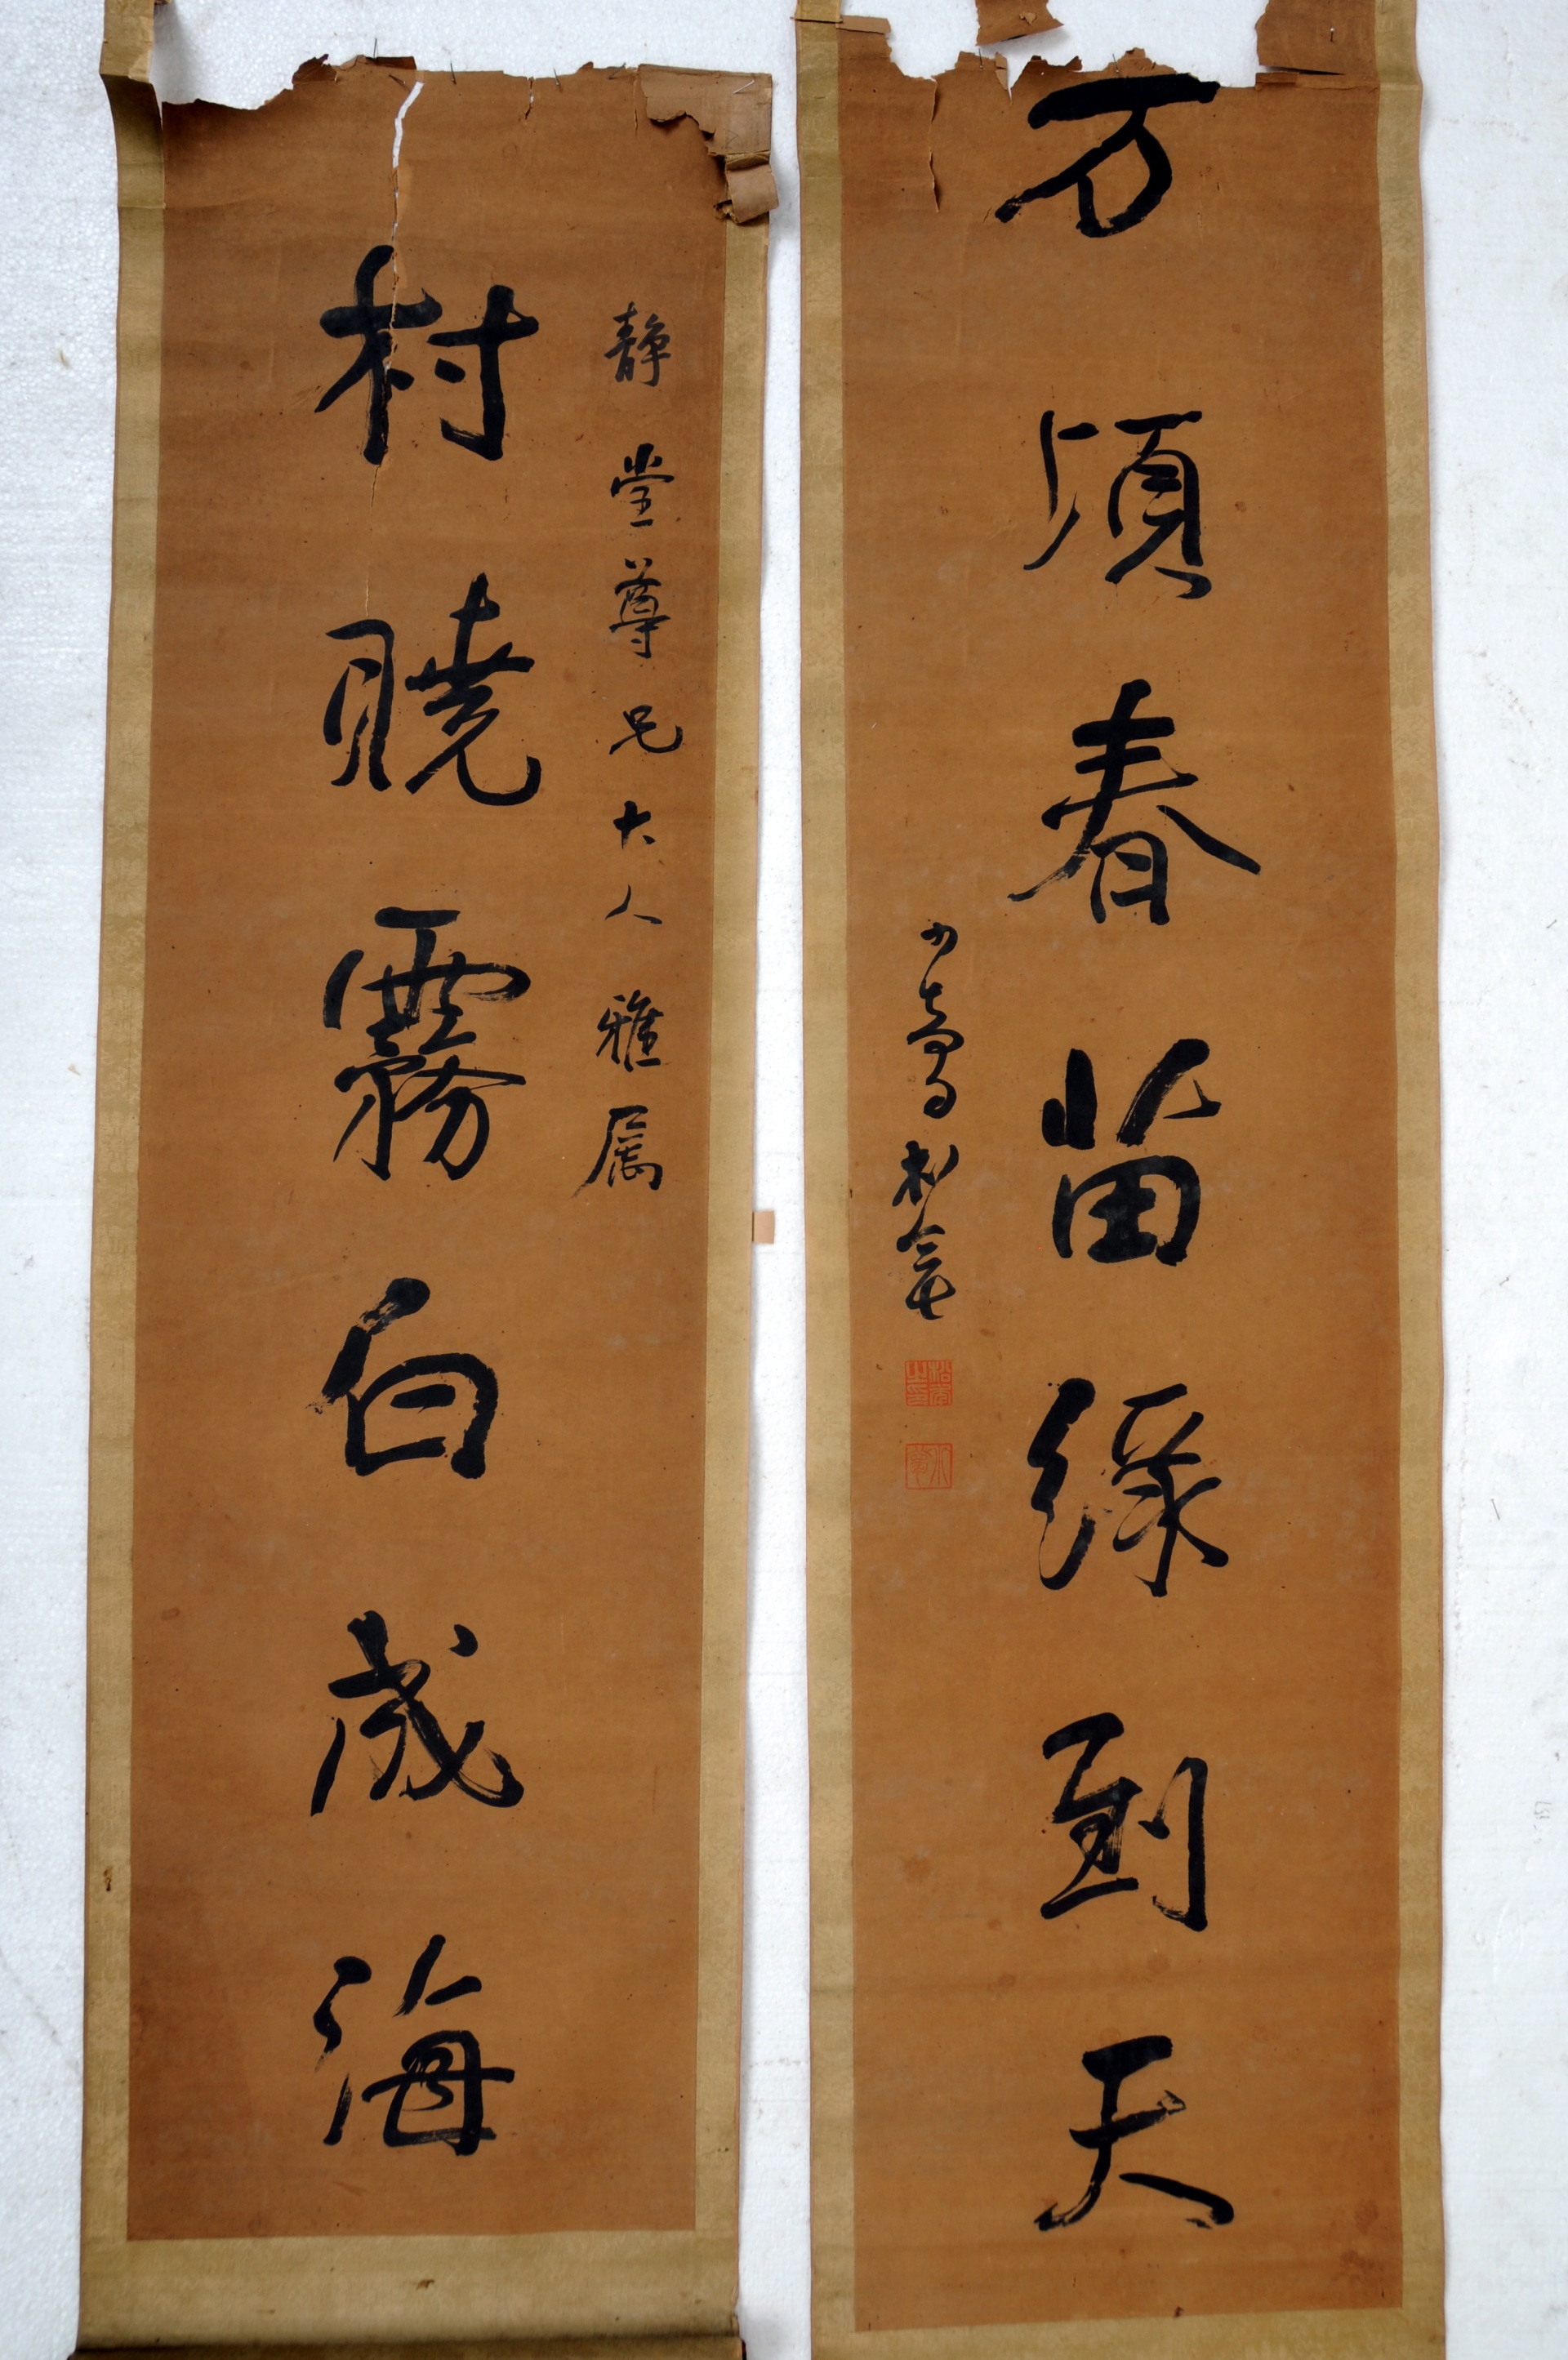 万頃春苗綠到天
静堂尊兄大人雅属
村曉霧白成海